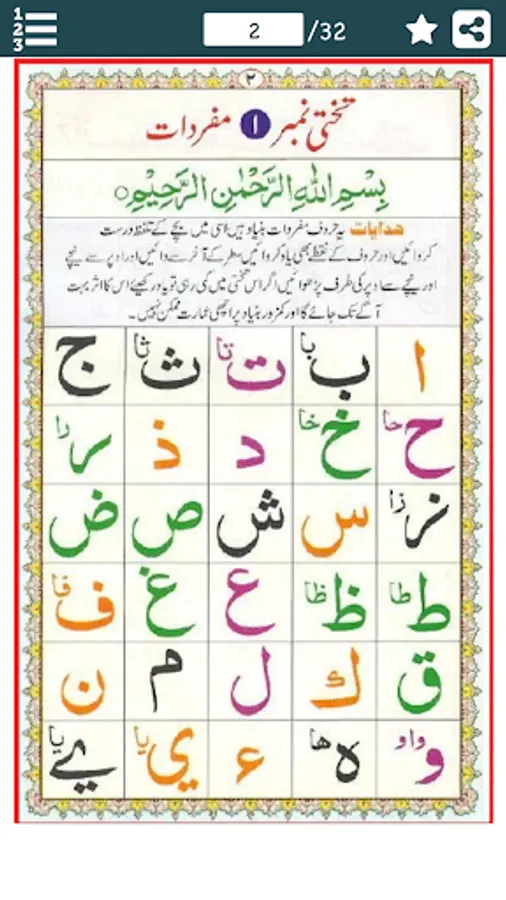 1 2 3
2 /32
۲
تختی نمبر ۱ مفردات
بِسْمِ اللّٰهِ الرَّحْمٰنِ الرَّحِيْمِ ○
ھدایات یہ حروف مفردات بنیاد ہیں اسی میں بچے کے تلفظ درست
کروائیں اور حروف کے نقطے بھی یاد کروائیں سطر کے آخر سے دائیں اور اوپر سے نیچے
اور نیچے سے اوپر کی طرف پڑھوائیں اگر اس تختی میں کمی رہی تو یاد رکھیئے اس کا اثر بہت
آگے تک جائے گا اور کمزور بنیاد پر اچھی عمارت ممکن نہیں۔
ا ب با ت تا ث ثا ج
ح حا خ خا د ذ ر را
ز زا س ش ص ض
ط طا ظ ظا ع غ ف فا
ق ك ل م ن
و واو ه ها ء ي يا ے يا